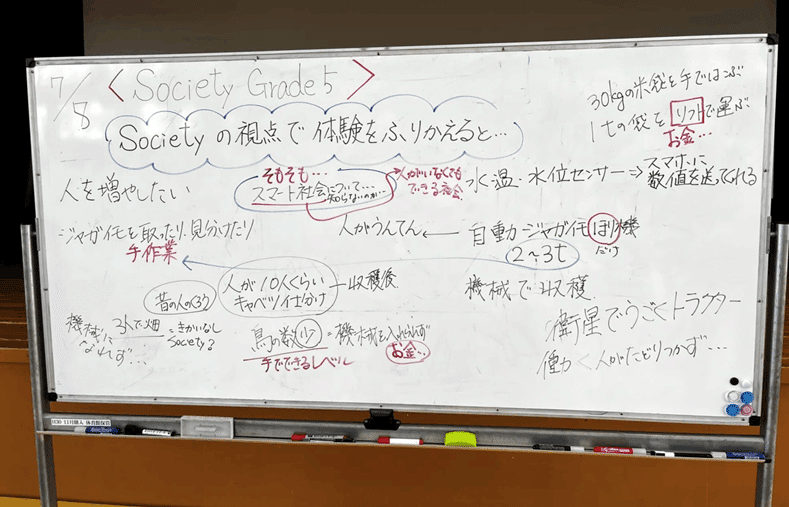 7/8
< Society Grade 5 >
Society の視点で 体験をふりかえると…
30kgの米袋を手ではこぶ
1tの袋をリフトで運ぶ
お金…
人を増やしたい
そもそも…
スマート社会について…
知らないのが…
人がいなくても
できる社会
水温・水位センサー⇒スマホに
数値を送ってくれる
ジャガイモを取ったり、見分けたり
手作業
人がうんてん ← 自動カージャガイモほり機
だけ
2~3t
人が10人くらい
キャベツ仕分け
収穫後
機械で収穫
昔の人のくろう
機械に
なれず…
3人で畑
=きかいなし
Society
鳥の数少
=機械を入れられず
手でできるレベル
お金…
衛星でうごくトラクター
働力<人がたどりつかず…
11月購入 体育館保管